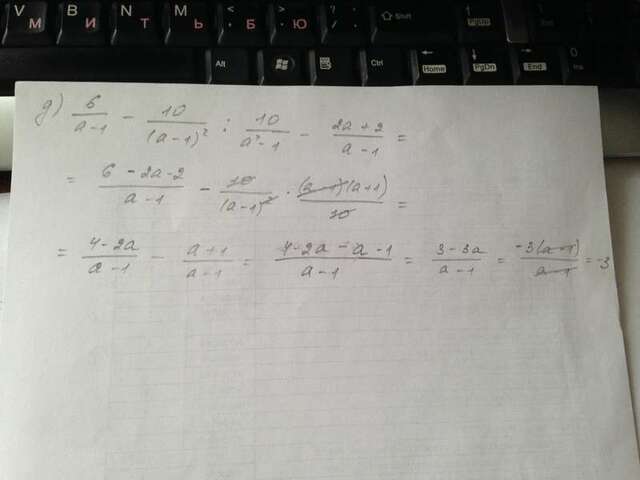 V М B И N Т M Ь < Б > Ю ? / Shift 1 End 2 ↓ 3 PgDn
Alt Ctrl ← Home ↓ PgDn → End 0 Ins
д) 6/(a-1) - 10/(a-1)² : 10/(a²-1) - (2a+2)/(a-1) =
= (6-2a-2)/(a-1) - 10/(a-1)² · (a-1)(a+1)/10 =
= (4-2a)/(a-1) - (a+1)/(a-1) = (4-2a-a-1)/(a-1) = (3-3a)/(a-1) = -3(a-1)/(a-1) = -3